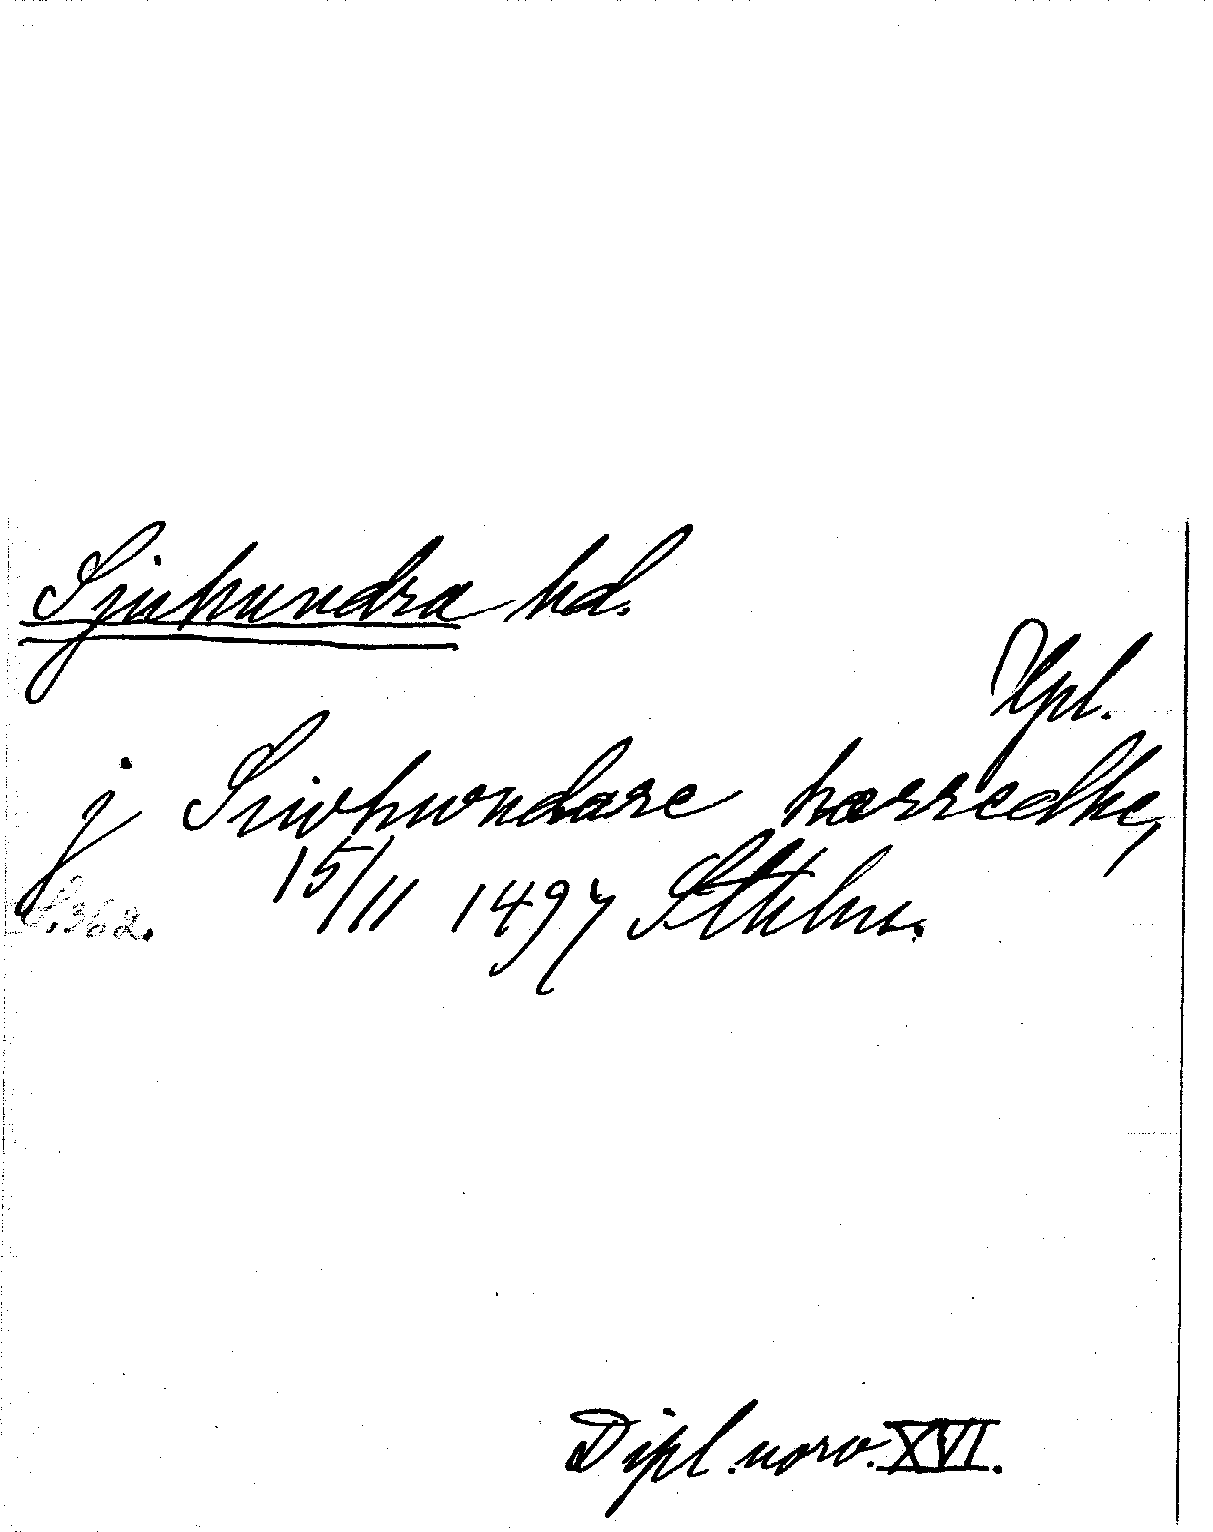 Sjuhundra hd.
Upl.
j Siwhwndare hærredhe,
S. 362. 15/11 1497 Sthlm.
Dipl. norv. XVI.